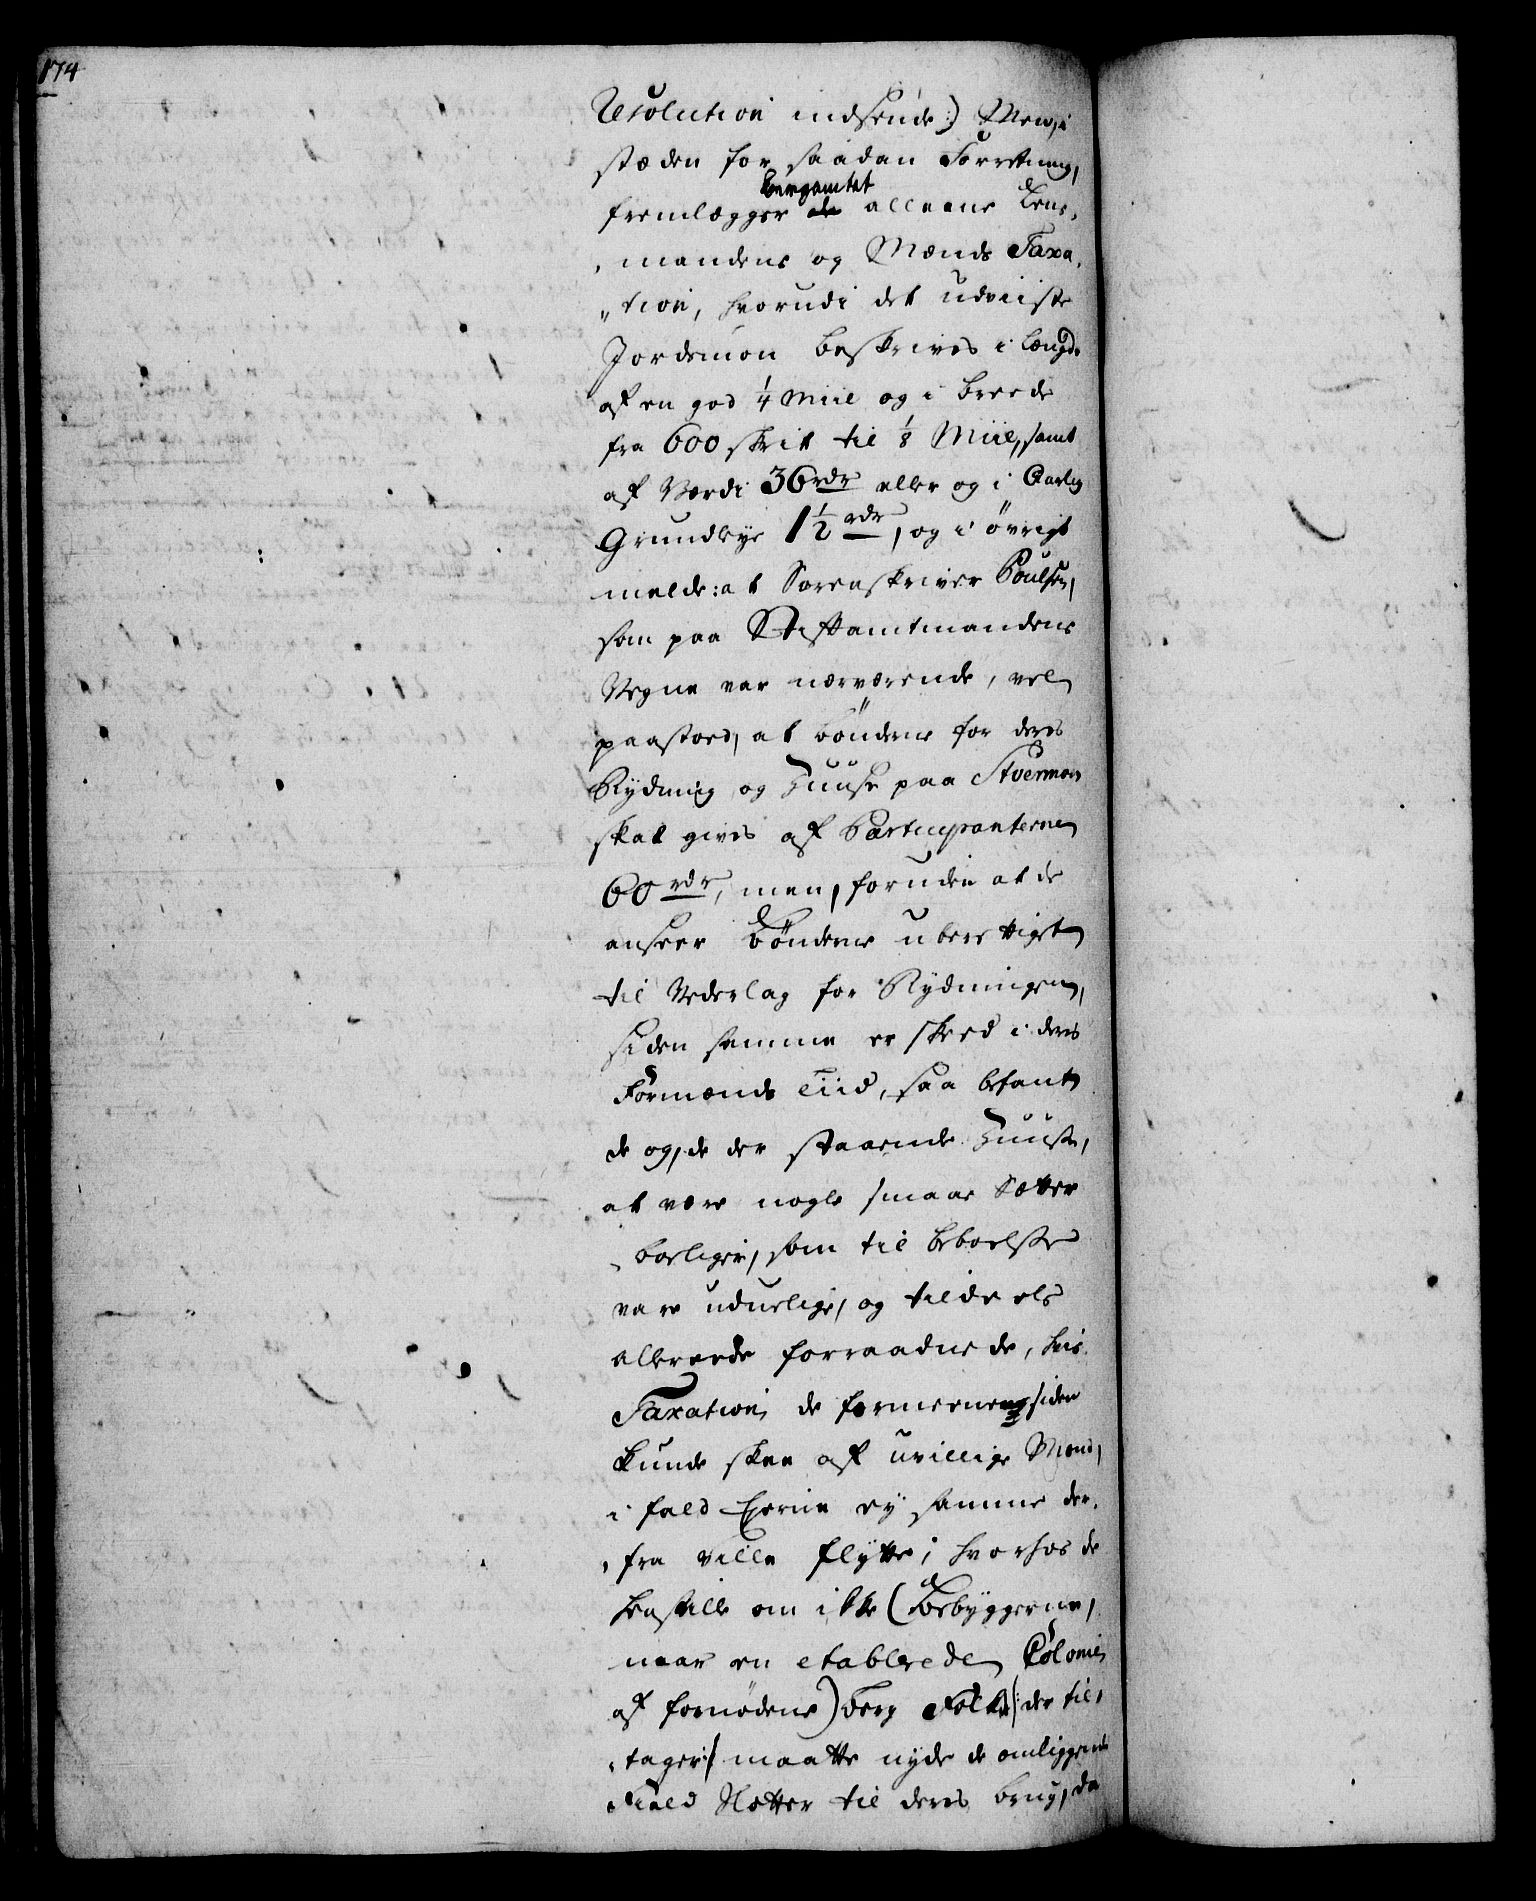 174
Resolution indsende:) Men, i
stæden for saadan Forretning,
Bergamtet
fremlægger de alleene Lens„
„mandens og Mænds Taxa„
„tion, hvorudi det udviiste
Jordemon beskrives i Længde
af en god 1/4 Miil og i Breede
fra 600 skrit til 1/8 Miil, samt
af Værdi 36 rdr eller og i Aarlig
Grundleye 1 1/2 rdr, og i øvrigt
melde: at Sorenskriver Poulsen,
som paa Stiftamtmandens
Vegne var nærværende, vel
paastoed, at Bønderne for deres
Rydning og Huuse paa Stuermoen
skal gives af Participanterne
60 rdr, men, foruden at de
anseer Bønderne uberettiget
til Vederlag for Rydningen,
siden samme er skeed i deres
Formænds Tiid, saa befant
de og, de der staaende Huuse,
at være nogle smaae Sætter
„boeliger, som til Beboelse
vare uduelige, og tildeels
allereede forraadnede, hvis
Taxation de formeene siden
kunde skee af uvillige Mænd,
i fald Eierne ey samme der„
„fra ville flytte; hvorhos de
henstille om ikke (Bebyggerne,
naar en etablerede Colonie
af fornødene) Berg Folk (: der til„
„tager :) maatte nyde de omliggende
Field Sletter til deres brug, da